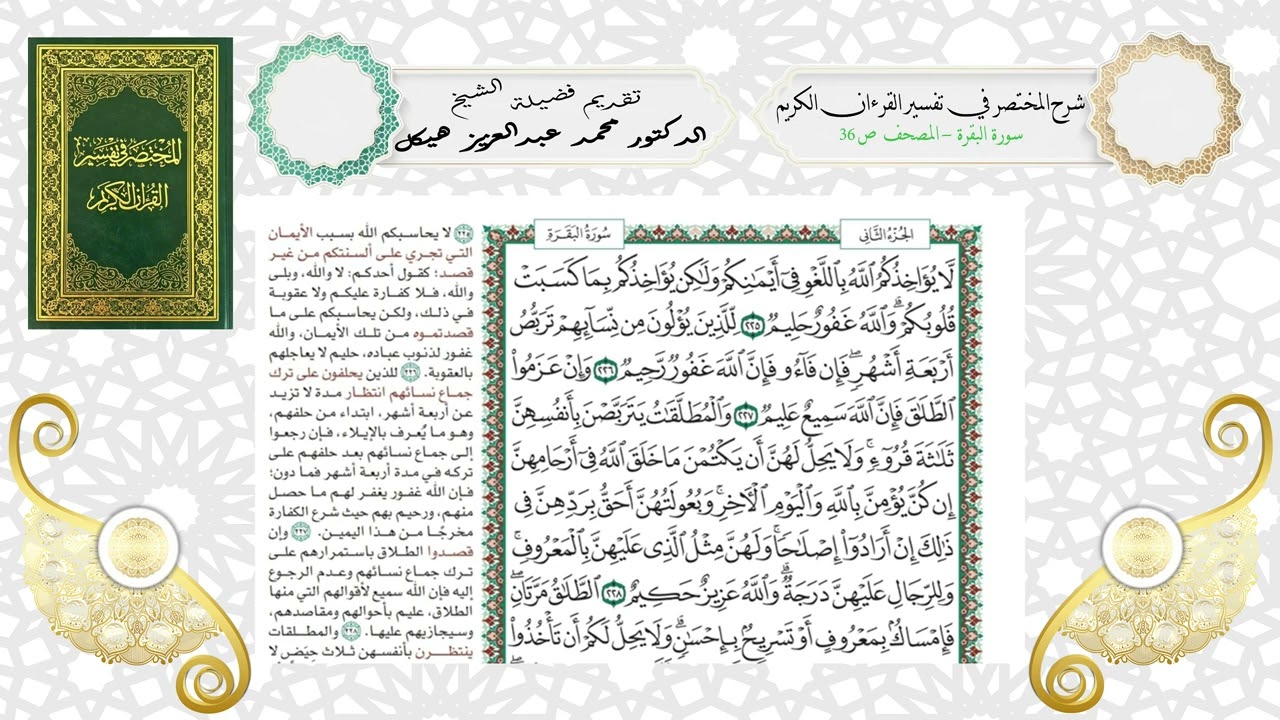 شرح المختصر في تفسير القرءان الكريم
سورة البقرة – المصحف ص36
تقديم فضيلة الشيخ
الدكتور محمد عبدالعزيز هيكل
المختصر في تفسير
القرآن الكريم
الجزء الثاني
سورة البقرة
لَّا يُؤَاخِذُكُمُ ٱللَّهُ بِٱللَّغۡوِ فِيٓ أَيۡمَٰنِكُمۡ وَلَٰكِن يُؤَاخِذُكُم بِمَا كَسَبَتۡ
قُلُوبُكُمۡۗ وَٱللَّهُ غَفُورٌ حَلِيمٞ ٢٢٥ لِّلَّذِينَ يُؤۡلُونَ مِن نِّسَآئِهِمۡ تَرَبُّصُ
أَرۡبَعَةِ أَشۡهُرٖۖ فَإِن فَآءُو فَإِنَّ ٱللَّهَ غَفُورٞ رَّحِيمٞ ٢٢٦ وَإِنۡ عَزَمُواْ
ٱلطَّلَٰقَ فَإِنَّ ٱللَّهَ سَمِيعٌ عَلِيمٞ ٢٢٧ وَٱلۡمُطَلَّقَٰتُ يَتَرَبَّصۡنَ بِأَنفُسِهِنَّ
ثَلَٰثَةَ قُرُوٓءٖۚ وَلَا يَحِلُّ لَهُنَّ أَن يَكۡتُمۡنَ مَا خَلَقَ ٱللَّهُ فِيٓ أَرۡحَامِهِنَّ
إِن كُنَّ يُؤۡمِنَّ بِٱللَّهِ وَٱلۡيَوۡمِ ٱلۡأٓخِرِۚ وَبُعُولَتُهُنَّ أَحَقُّ بِرَدِّهِنَّ فِي
ذَٰلِكَ إِنۡ أَرَادُوٓاْ إِصۡلَٰحٗاۚ وَلَهُنَّ مِثۡلُ ٱلَّذِي عَلَيۡهِنَّ بِٱلۡمَعۡرُوفِۚ
وَلِلرِّجَالِ عَلَيۡهِنَّ دَرَجَةٞۗ وَٱللَّهُ عَزِيزٌ حَكِيمٌ ٢٢٨ ٱلطَّلَٰقُ مَرَّتَانِۖ
فَإِمۡسَاكُۢ بِمَعۡرُوفٍ أَوۡ تَسۡرِيحُۢ بِإِحۡسَٰنٖۗ وَلَا يَحِلُّ لَكُمۡ أَن تَأۡخُذُواْ
٢٢٥ لا يحاسبكم الله بسبب الأيمان
التي تجري على ألسنتكم من غير
قصد؛ كقول أحدكم: لا والله، وبلى
والله، فلا كفارة عليكم ولا عقوبة
في ذلك، ولكن يحاسبكم على ما
قصدتموه من تلك الأيمان، والله
غفور لذنوب عباده، حليم لا يعاجلهم
بالعقوبة. ٢٢٦ للذين يحلفون على ترك
جماع نسائهم انتظار مدة لا تزيد
عن أربعة أشهر، ابتداء من حلفهم،
وهو ما يُعرف بالإيلاء، فإن رجعوا
إلى جماع نسائهم بعد حلفهم على
تركه في مدة أربعة أشهر فما دون؛
فإن الله غفور يغفر لهم ما حصل
منهم، ورحيم بهم حيث شرع الكفارة
مخرجًا من هذا اليمين. ٢٢٧ وإن
قصدوا الطلاق باستمرارهم على
ترك جماع نسائهم وعدم الرجوع
إليه فإن الله سميع لأقوالهم التي منها
الطلاق، عليم بأحوالهم ومقاصدهم،
وسيجازيهم عليها. ٢٢٨ والمطلقات
ينتظرن بأنفسهن ثلاث حِيَض لا